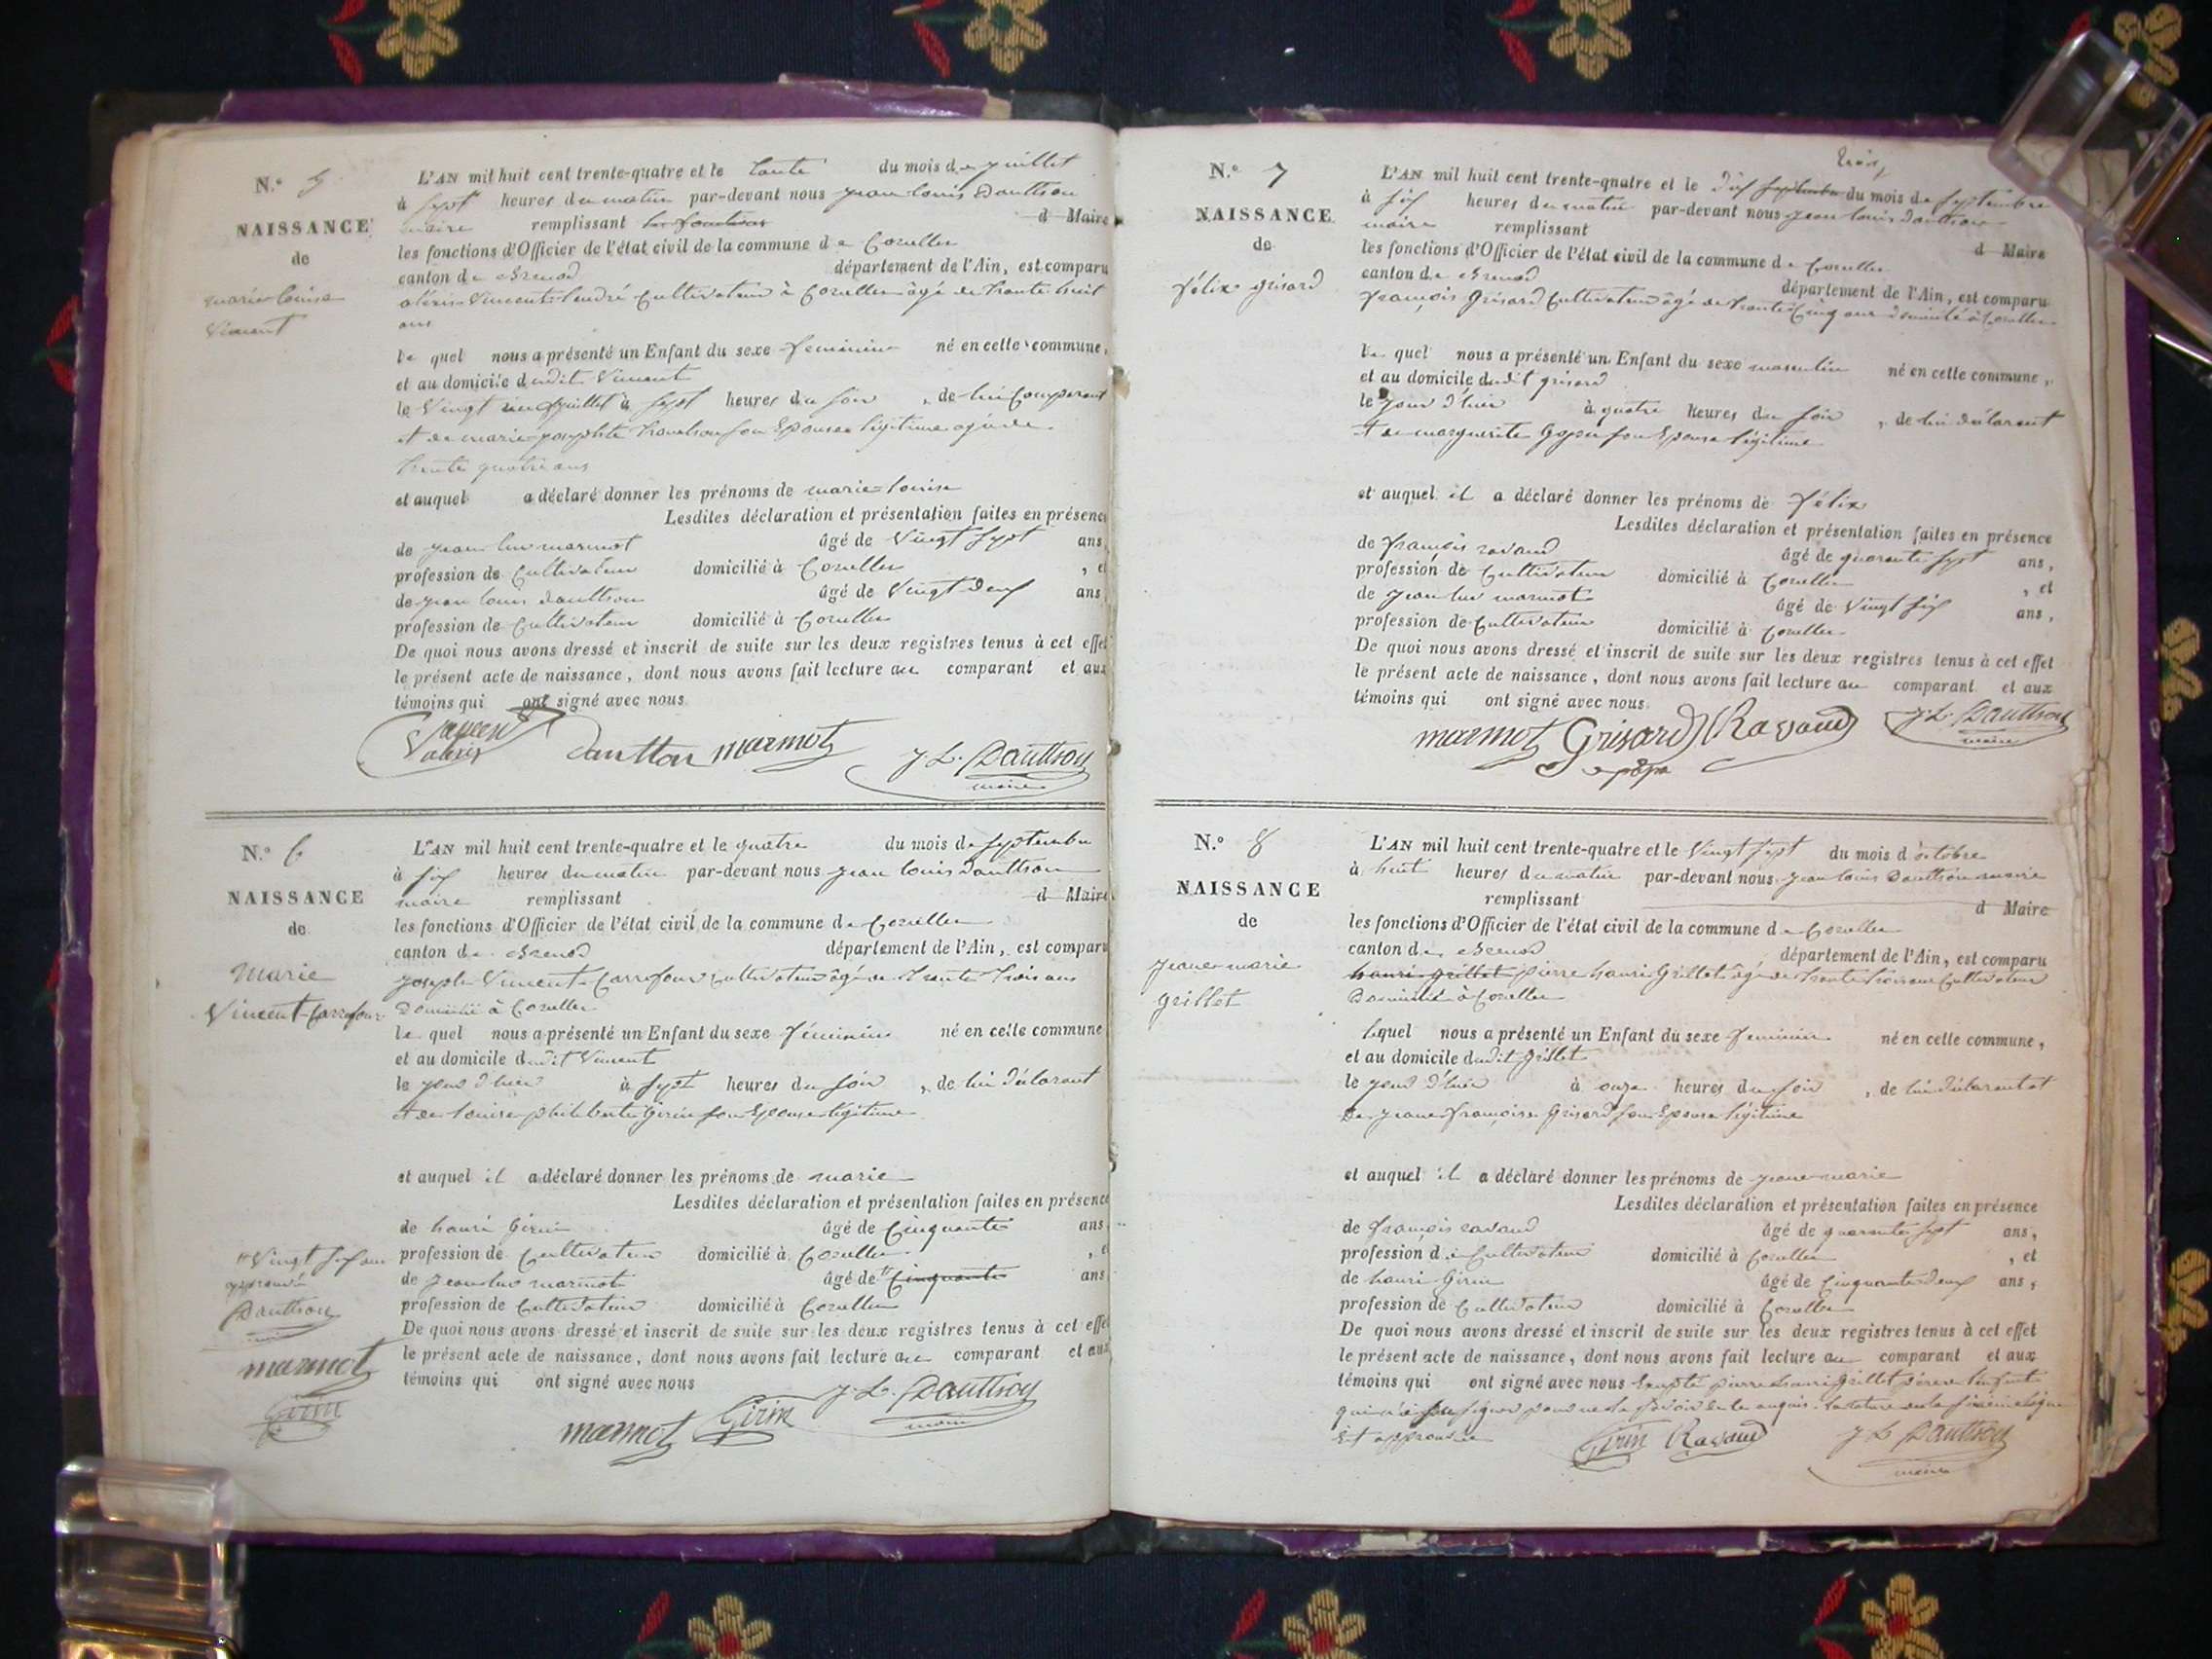 N.º 5
NAISSANCE
de
marie louise
Vincent
L'AN mil huit cent trente-quatre et le trente du mois de juillet
à sept heures du matin par-devant nous jean louis Dauttson
maire remplissant les fonctions d Maire
les fonctions d'Officier de l'état civil de la commune de Corcelles
canton de Brenod département de l'Ain, est comparu
alexis Vincent cultivateur à Corcelles âgé de trente huit
ans
le quel nous a présenté un Enfant du sexe feminin né en cette commune,
et au domicile dudit Vincent
le Vingt juillet à sept heures du soir , de lui Comparant
et de marie josephte son Epouse légitime agée de
trente quatre ans
et auquel a déclaré donner les prénoms de marie-louise
Lesdites déclaration et présentation faites en présence
de jean luc marmot âgé de Vingt sept ans
profession de Cultivateur domicilié à Corcelles , et
de jean louis Dauttson âgé de Vingt deux ans
profession de Cultivateur domicilié à Corcelles
De quoi nous avons dressé et inscrit de suite sur les deux registres tenus à cet effet
le présent acte de naissance, dont nous avons fait lecture au comparant et aux
témoins qui ont signé avec nous
Vincent
alexis Dautton marmot J. L. Dauttson
maire
N.º 6
NAISSANCE
de
Marie
Vincent-Carrefour
L'AN mil huit cent trente-quatre et le quatre du mois de septembre
à six heures du matin par-devant nous jean louis Dauttson
maire remplissant d Maire
les fonctions d'Officier de l'état civil de la commune de Corcelles
canton de Brenod département de l'Ain, est comparu
joseph Vincent-Carrefour cultivateur âgé de trente trois ans
Domicilié à Corcelles
le quel nous a présenté un Enfant du sexe féminin né en cette commune
et au domicile dudit Vincent
le jour d'hier à sept heures du soir , de lui déclarant
et de louise philiberte Girin son Epouse légitime
et auquel il a déclaré donner les prénoms de marie
Lesdites déclaration et présentation faites en présence
de henri Girin âgé de Cinquante ans
profession de Cultivateur domicilié à Corcelles , et
de jean luc marmot âgé de Cinquante ans
profession de Cultivateur domicilié à Corcelles
De quoi nous avons dressé et inscrit de suite sur les deux registres tenus à cet effet
le présent acte de naissance, dont nous avons fait lecture au comparant et aux
témoins qui ont signé avec nous
marmot Girin J. L. Dauttson
maire
Vingt six ans
approuvé
Dauttson
maire
marmot
Girin
N.º 7
NAISSANCE
de
félix grisard
trois
L'AN mil huit cent trente-quatre et le dix septembre du mois de septembre
à six heures du matin par-devant nous jean louis Dauttson
maire remplissant d Maire
les fonctions d'Officier de l'état civil de la commune de Corcelles
canton de Brenod département de l'Ain, est comparu
françois Grisard Cultivateur âgé de trente Cinq ans domicilié à Corcelles
le quel nous a présenté un Enfant du sexe masculin né en cette commune,
et au domicile dudit grisard
le jour d'hier à quatre heures du soir , de lui déclarant
et de marguerite son Epouse légitime
et auquel il a déclaré donner les prénoms de félix
Lesdites déclaration et présentation faites en présence
de françois ravaud âgé de quarante sept ans,
profession de Cultivateur domicilié à Corcelles , et
de jean luc marmot âgé de Vingt six ans,
profession de Cultivateur domicilié à Corcelles
De quoi nous avons dressé et inscrit de suite sur les deux registres tenus à cet effet
le présent acte de naissance, dont nous avons fait lecture au comparant et aux
témoins qui ont signé avec nous
marmot Grisard Ravaud J. L. Dauttson
papa maire
N.º 8
NAISSANCE
de
jeane-marie
grillet
L'AN mil huit cent trente-quatre et le Vingt sept du mois d'octobre
à huit heures du matin par-devant nous jean louis Dauttson maire
remplissant d Maire
les fonctions d'Officier de l'état civil de la commune de Corcelles
canton de Brenod département de l'Ain, est comparu
henri grillet pierre henri Grillet âgé de trente trois ans Cultivateur
Domicilié à Corcelles
lequel nous a présenté un Enfant du sexe feminin né en cette commune,
et au domicile dudit grillet
le jour d'hier à onze heures du soir , de lui déclarant et
de jeane-françoise Grisard son Epouse légitime
et auquel il a déclaré donner les prénoms de jeane-marie
Lesdites déclaration et présentation faites en présence
de françois ravaud âgé de quarante sept ans,
profession de Cultivateur domicilié à Corcelles , et
de henri Girin âgé de Cinquante deux ans,
profession de Cultivateur domicilié à Corcelles
De quoi nous avons dressé et inscrit de suite sur les deux registres tenus à cet effet
le présent acte de naissance, dont nous avons fait lecture au comparant et aux
témoins qui ont signé avec nous Excepté pierre henri Grillet père de l'enfant
qui n'a su signer pour ne le savoir la rature de la sixième ligne
Est approuvée Girin Ravaud J L Dauttson
maire